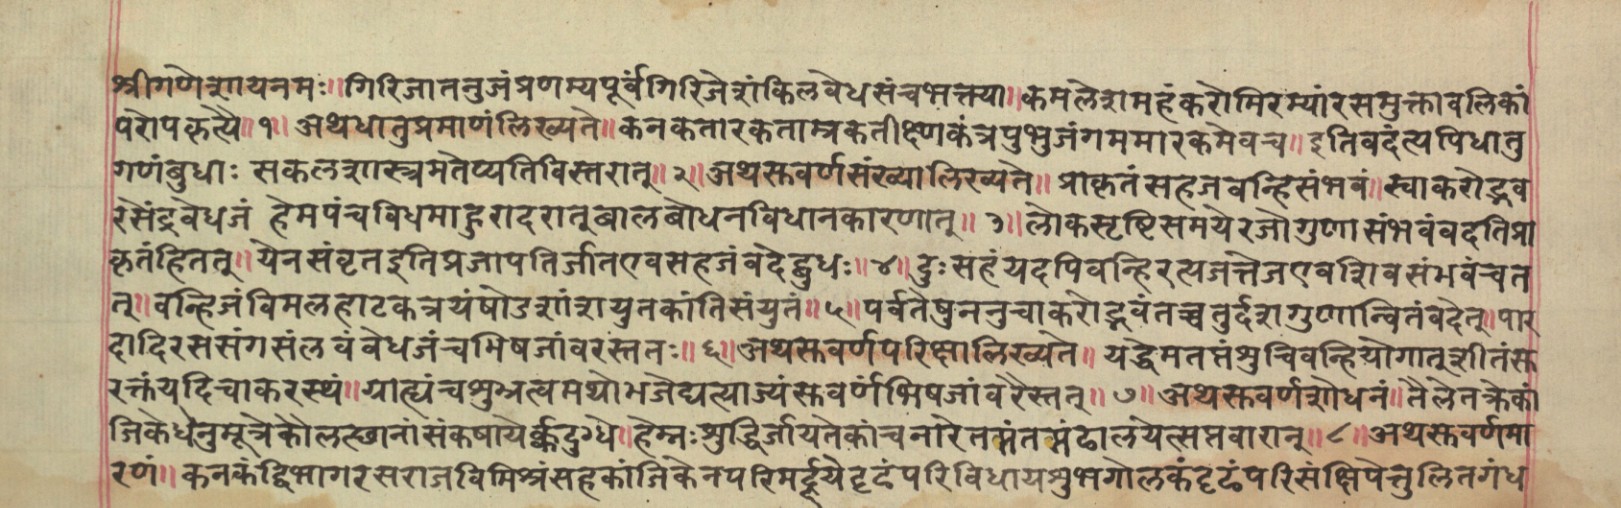 श्रीगणेशायनमः॥गिरिजातनुजंप्रणम्यपूर्वंगिरिजेशंकिलवेधसंचभक्त्या॥कमलेशमहंकरोमिरम्यांरसमुक्तावलिकां
परोपकृत्यै॥१॥अथधातुप्रमाणंलिख्यते॥कनकतारकताम्रकतीक्ष्णकंत्रपुभुजंगममारकमेवच॥इतिवदंत्यपिधातु
गणंबुधाः सकलशास्त्रमतेप्यतिविस्तरात्॥२॥अथस्तवर्णसंख्यालिख्यते॥प्राकृतंसहजवन्हिसंभवं॥स्वाकरोद्भव
रसेंद्रवेधजं हेमपंचविधमाहुरादरात्बालबोधनविधानकारणात्॥३॥लोकसृष्टिसमयेरजोगुणासंभवंवदतिप्रा
कृतंहितत्॥येनसंवृतइतिप्रजापतिर्जातएवसहजंवदेद्बुधः॥४॥दुःसहंयदपिवन्हिरत्यजत्तेजएवशिवसंभवंचत
त्॥वन्हिजंविमलहाटकत्रयंषोडशांशयुतकांतिसंयुतं॥५॥पर्वतेषुननुचाकरोद्भवंतच्चतुर्दशगुणान्वितंवदेत्॥पार
दादिरससंगसंलवंवेधजंचभिषजांवरस्ततः॥६॥अथस्तवर्णपरिक्षालिख्यते॥ यद्धेमतप्तंशुचिवन्हियोगात्शीतंस्त
रक्तंयदिचाकरस्थं॥ग्राह्यंचशुभ्रत्वमथोभजेद्यत्याज्यंस्तवर्णंभिषजांवरैस्तत्॥७॥अथस्तवर्णशोधनं॥तैलेतक्रेकां
जिकेधेनुमूत्रेकौलत्छानांसंकषायेर्क्कदुग्धे॥हेम्नःशुद्धिर्जायतेकांचनारेतप्तंतप्तंढालयेत्सप्तवारान्॥८॥अथस्तवर्णमा
रणं॥कनकंद्विभागरसराजविमिश्रंसहकांजिकेनपरिमर्द्दयेदृढंपरिविधायशुभगोलकंदृढंपरिसंक्षिपेत्तुलितगंध